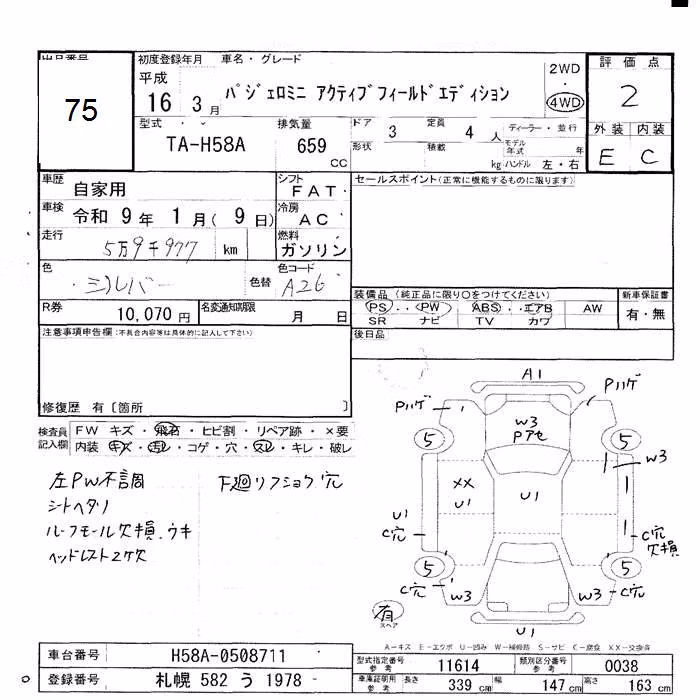 出品番号
75
初度登録年月 車名・グレード
平成
16 3 月
パジェロミニ アクティブフィールドエディション
2WD
・
4WD
評価点
2
外装 内装
E C
型式 ・
TA-H58A
排気量
659
CC
ドア 3 定員 4 人 ディーラー・並行
形状 積載 kg モデル年式 年
ハンドル 左・右
車歴
自家用
シフト
FAT
車検
令和 9 年 1 月( 9 日)
冷房
AC
走行
5万9千977 km
燃料
ガソリン
色
シルバー
色替
色コード
A26
R券
10,070 円
名変通知期限
月 日
セールスポイント(正常に機能するものに限ります)
装備品(純正品に限り○をつけてください)
PS・・PW ABS・・エアB AW
SR ナビ TV カワ
新車保証書
有・無
後日品
注意事項申告欄(不具合内容等は具体的に記入して下さい)
修復歴 有〔箇所 〕
検査員記入欄
FW キズ・飛石・ヒビ割・リペア跡・×要
内装 キズ・汚レ・コゲ・穴・スレ・キレ・破レ
左PW不調
シートヘタリ
ルーフモール欠損・ウキ
ヘッドレスト2ケ欠
F廻リフショク穴
A1
Pハゲ
Pハゲ
W3
Pアセ
5
5
W3
XX
U1
U1
U1
C穴
C穴
欠損
5
5
C穴
W3
W3
C穴
有
スペア
U1
A-キズ E-エクボ U-凹み W-補修跡 S-サビ C-腐食 XX-交換済
車台番号 H58A-0508711
登録番号 札幌 582 う 1978
型式指定番号
参考
11614
類別区分番号
参考
0038
車庫証明用
参考
長さ 339 cm 幅 147 cm 高さ 163 cm